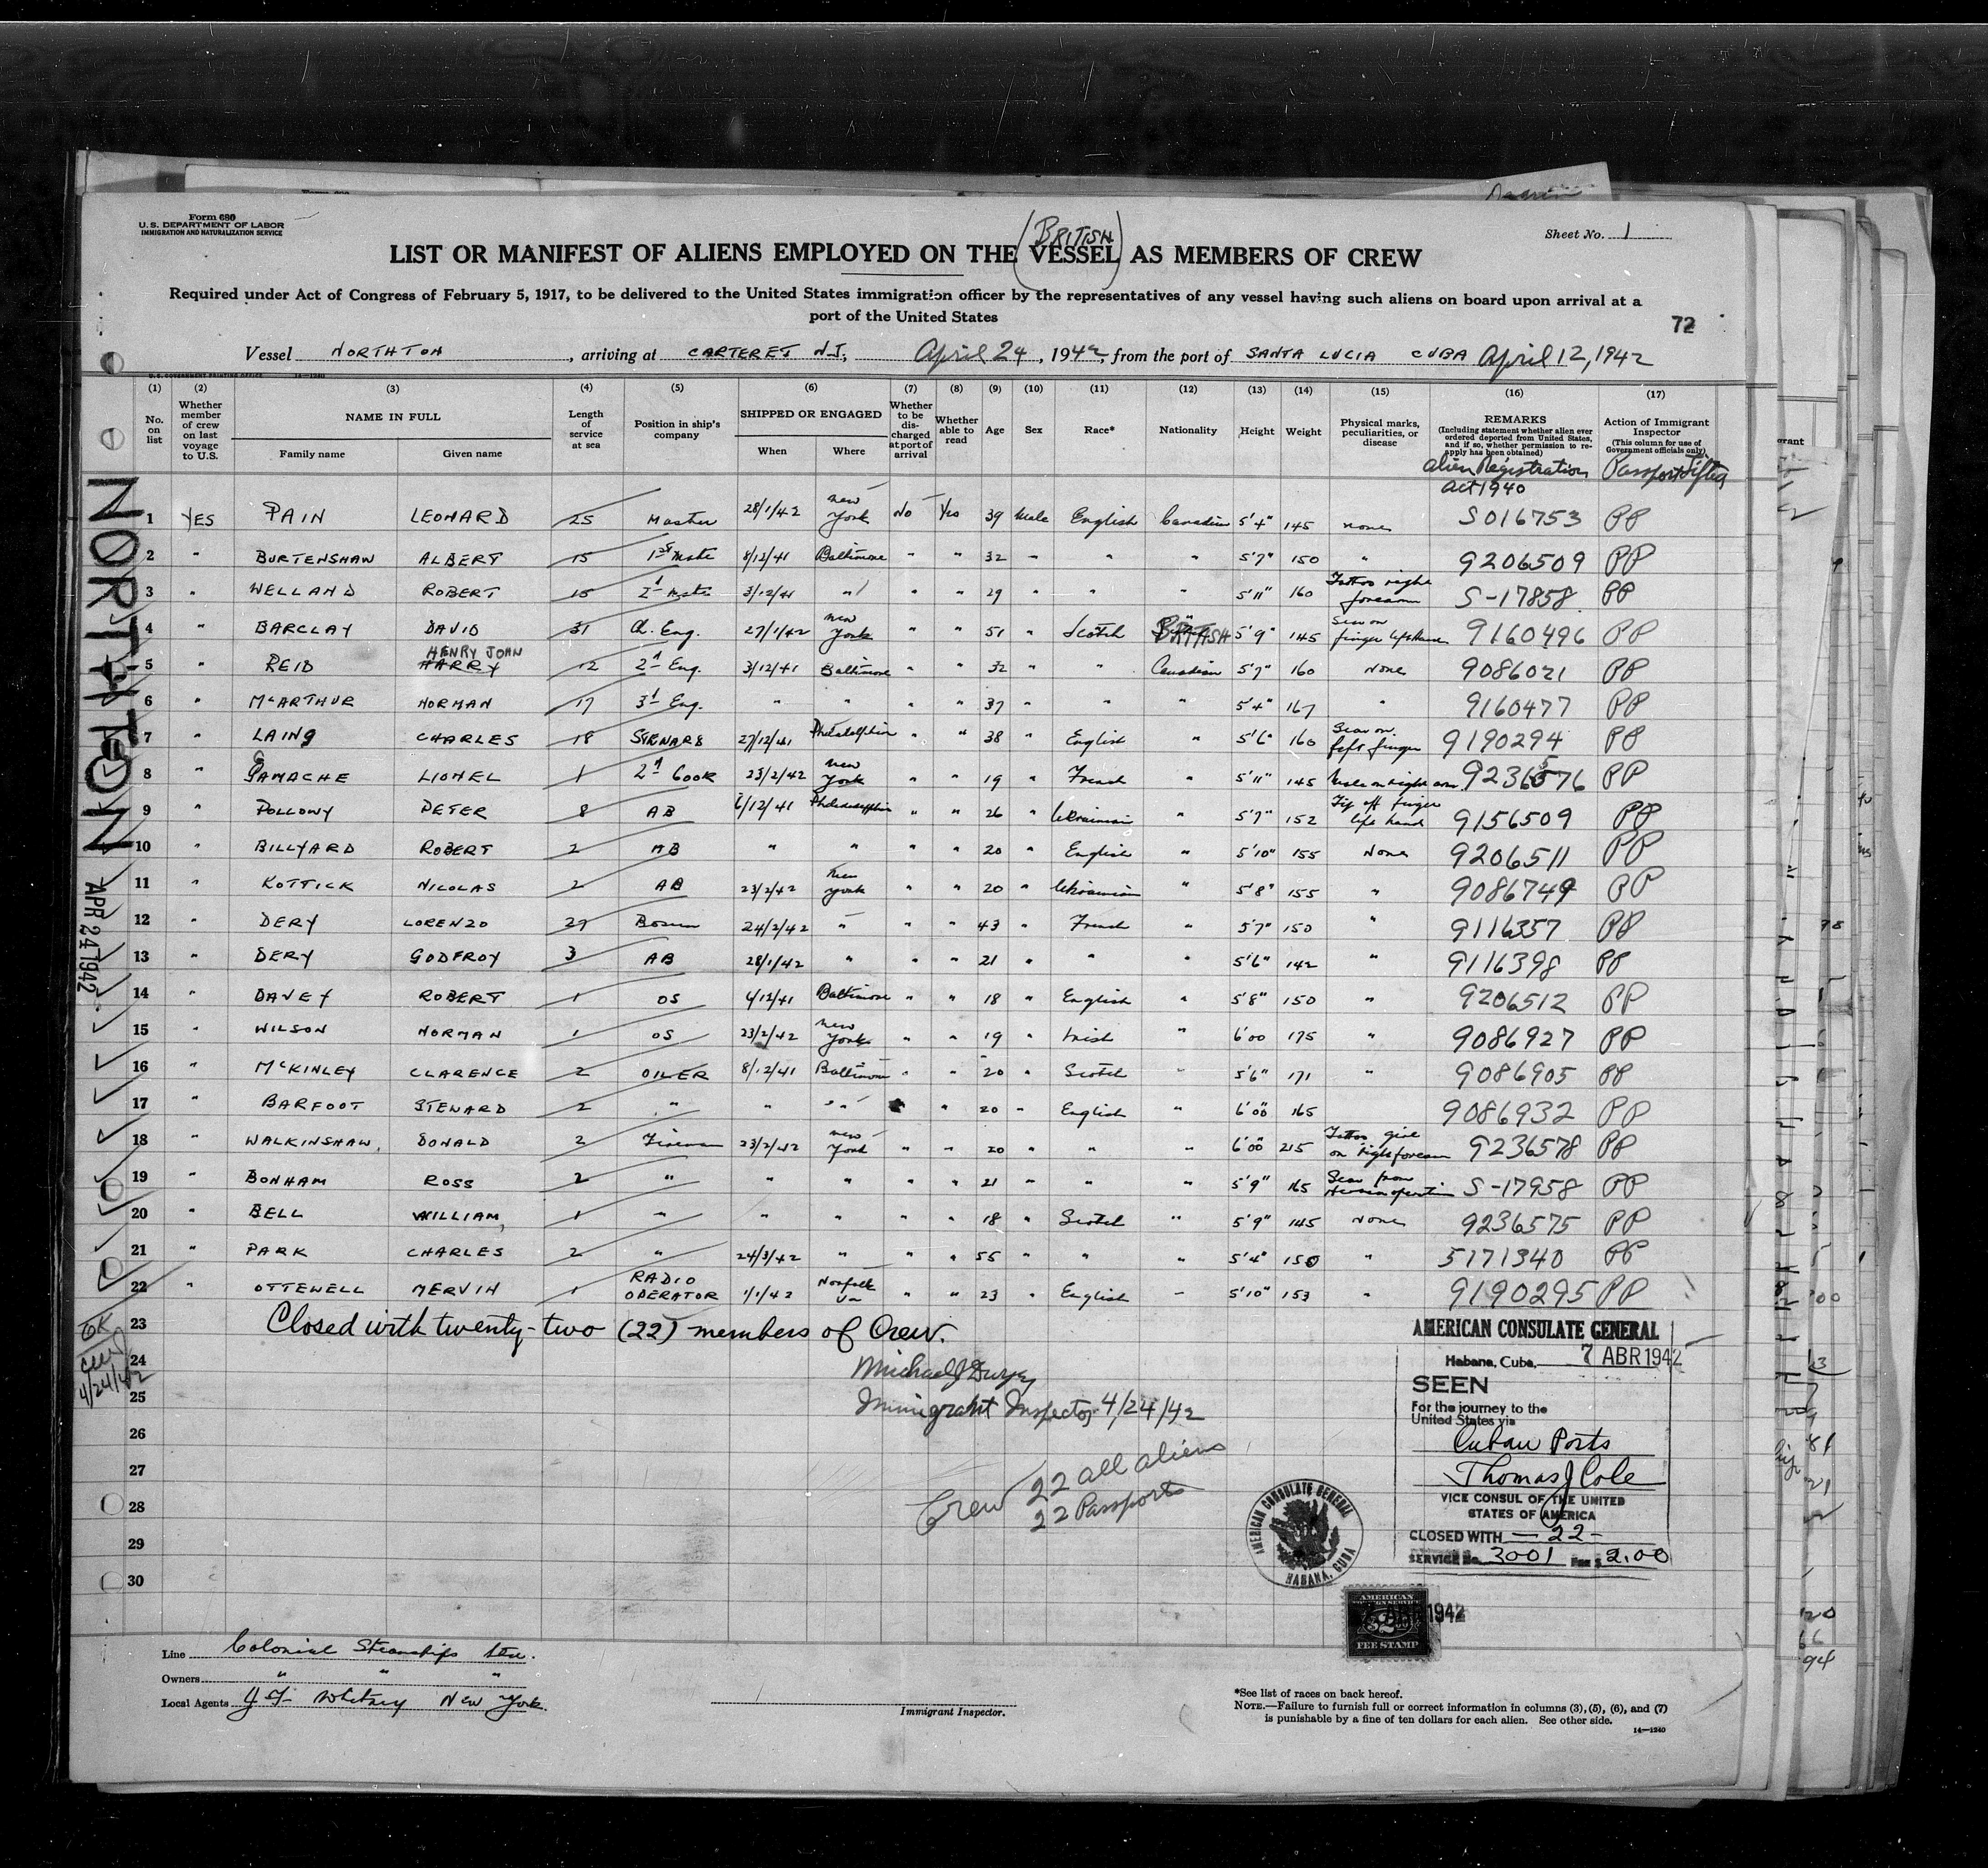 Form 680
U.S. DEPARTMENT OF LABOR
IMMIGRATION AND NATURALIZATION SERVICE
Sheet No. 1
(BRITISH)
LIST OR MANIFEST OF ALIENS EMPLOYED ON THE VESSEL AS MEMBERS OF CREW
Required under Act of Congress of February 5, 1917, to be delivered to the United States immigration officer by the representatives of any vessel having such aliens on board upon arrival at a
port of the United States
72
Vessel NORTHTON, arriving at CARTERET N.J., April 24, 1942, from the port of SANTA LUCIA CUBA April 12, 1942
U.S. GOVERNMENT PRINTING OFFICE 14—1240
(1) (2) (3) (4) (5) (6) (7) (8) (9) (10) (11) (12) (13) (14) (15) (16) (17)
No. on list
Whether member of crew on last voyage to U.S.
NAME IN FULL
Family name Given name
Length of service at sea
Position in ship's company
SHIPPED OR ENGAGED
When Where
Whether to be discharged at port of arrival
Whether able to read
Age
Sex
Race*
Nationality
Height
Weight
Physical marks, peculiarities, or disease
REMARKS
(Including statement whether alien ever ordered deported from United States, and if so, whether permission to reapply has been obtained)
Alien Registration Act 1940
Action of Immigrant Inspector
(This column for use of Government officials only)
Passports
1 YES PAIN LEONARD 25 Master 28/1/42 New York No Yes 39 Male English Canadian 5'4" 145 none S016753 PP
2 " BURTENSHAW ALBERT 15 1st Mate 8/12/41 Baltimore " " 32 " " " 5'7" 150 " 9206509 PP
3 " WELLAND ROBERT 15 2d Mate 3/12/41 " " " 29 " " " 5'11" 160 Tattoo right forearm S-17858 PP
4 " BARCLAY DAVID 31 Ch. Eng. 27/1/42 New York " " 51 " Scotch BRITISH 5'9" 145 Scar on finger left hand 9160496 PP
5 " REID HENRY JOHN HARRY 12 2d Eng. 3/12/41 Baltimore " " 32 " " Canadian 5'7" 160 None 9086021 PP
6 " McARTHUR NORMAN 17 3d Eng. " " " " 37 " " " 5'4" 167 " 9160477 PP
7 " LAING CHARLES 18 STEWARD 27/12/41 Philadelphia " " 38 " English " 5'6" 160 Scar on left finger 9190294 PP
8 " GAMACHE LIONEL 1 2d Cook 23/2/42 New York " " 19 " French " 5'11" 145 Mole on right arm 9236576 PP
9 " POLLOWY PETER 8 AB 6/12/41 Philadelphia " " 26 " Ukrainian " 5'7" 152 Tip off finger left hand 9156509 PP
10 " BILLYARD ROBERT 2 AB " " " " 20 " English " 5'10" 155 None 9206511 PP
11 " KOTTICK NICOLAS 2 AB 23/2/42 New York " " 20 " Ukrainian " 5'8" 155 " 9086749 PP
12 " DERY LORENZO 27 Bosun 24/2/42 " " " 43 " French " 5'7" 150 " 9116357 PP
13 " DERY GODFROY 3 AB 28/1/42 " " " 21 " " " 5'6" 142 " 9116398 PP
14 " DAVEY ROBERT 1 OS 4/12/41 Baltimore " " 18 " English " 5'8" 150 " 9206512 PP
15 " WILSON NORMAN 1 OS 23/2/42 New York " " 19 " Irish " 6'00 175 " 9086927 PP
16 " McKINLEY CLARENCE 2 OILER 8/12/41 Baltimore " " 20 " Scotch " 5'6" 171 " 9086905 PP
17 " BARFOOT STENARD 2 " " " " 20 " English " 6'00" 165 9086932 PP
18 " WALKINSHAW, DONALD 2 Fireman 23/2/42 New York " " 20 " " " 6'00" 215 Tattoo girl on right forearm 9236578 PP
19 " BONHAM ROSS 2 " " " " " 21 " " " 5'9" 165 Scar from operation S-17958 PP
20 " BELL WILLIAM, 1 " " " " " 18 " Scotch " 5'9" 145 None 9236575 PP
21 " PARK CHARLES 2 " 24/3/42 " " " 55 " " " 5'4" 150 " 5171340 PP
22 " OTTEWELL MERVIN 1 RADIO OPERATOR 1/1/42 Norfolk Va " " 23 " English " 5'10" 153 " 9190295 PP
23 Closed with twenty-two (22) members of Crew.
24
25
26
27
28
29
30
Michael J Dwyer
Immigrant Inspector 4/24/42
Crew 22 all aliens
22 Passports
NORTHTON
APR 24 1942
OK
4/24/42
AMERICAN CONSULATE GENERAL
Habana, Cuba, 7 ABR 1942
SEEN
For the journey to the
United States via
Cuban Ports
Thomas J Cole
VICE CONSUL OF THE UNITED
STATES OF AMERICA
CLOSED WITH — 22 —
SERVICE No. 3001 Fee $ 2.00
AMERICAN CONSULATE GENERAL
HABANA, CUBA
AMERICAN
FOREIGN SERVICE
$2
FEE STAMP
1942
Line Colonial Steamships Ltd.
Owners " " "
Local Agents J. F. Whitney New York.
Immigrant Inspector.
*See list of races on back hereof.
NOTE.—Failure to furnish full or correct information in columns (3), (5), (6), and (7)
is punishable by a fine of ten dollars for each alien. See other side.
14—1240